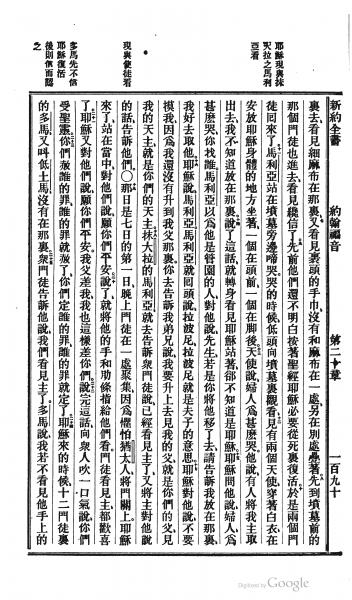 新約全書
約翰福音
第二十章
一百九十
耶穌現與抹
大拉之馬利
亞看
現與使徒看
多馬先不信
耶穌復活
後則信而認
之
裏去看見細麻布在那裏又看見裹頭的手巾沒有和麻布在一處另在別處疊著先到墳墓前的
那個門徒也進去看見纔信了先前他們還不明白按著聖經耶穌必要從死裏復活於是兩個門
徒回來了馬利亞站在墳墓旁邊啼哭哭的時候低頭向墳墓裏觀看見有兩個天使穿著白衣在
安放耶穌身體的地方坐著一個在頭前一個在脚後天使說婦人爲甚麽哭他說有人將我主取
出去我不知道放在那裏說了這話就轉身看見耶穌站著卻不知道是耶穌耶穌問他說婦人爲
甚麽哭你找誰馬利亞以爲他是管園的人對他說先生若是你將他移了去請告訴我放在那裏
我好去取他耶穌說馬利亞馬利亞就回頭說拉波尼拉波尼就是夫子的意思耶穌對他說不要
摸我因爲我還沒有升到我父那裏你去告訴我弟兄說我要升上去見我的父就是你們的父見
我的天主就是你們的天主抹大拉的馬利亞就去告訴衆門徒說已經看見主了又將主對他說
的話告訴他們〇那日是七日的第一日晚上門徒在一處聚集因爲懼怕猶太人將門關上耶穌
來了站在當中對他們說願你們平安說了就將他的手和肋條指給他們看門徒看見主都歡喜
了耶穌又對他們說願你們平安我父差我我也這樣差你們說完這話向衆人吹一口氣說你們
受聖靈你們赦誰的罪誰的罪就赦了你們定誰的罪誰的罪就定了耶穌來的時候十二門徒裏
的多馬又叫低土馬沒有在那裏衆門徒告訴他說我們看見主了多馬說我若不看見他手上的
Digitized by Google